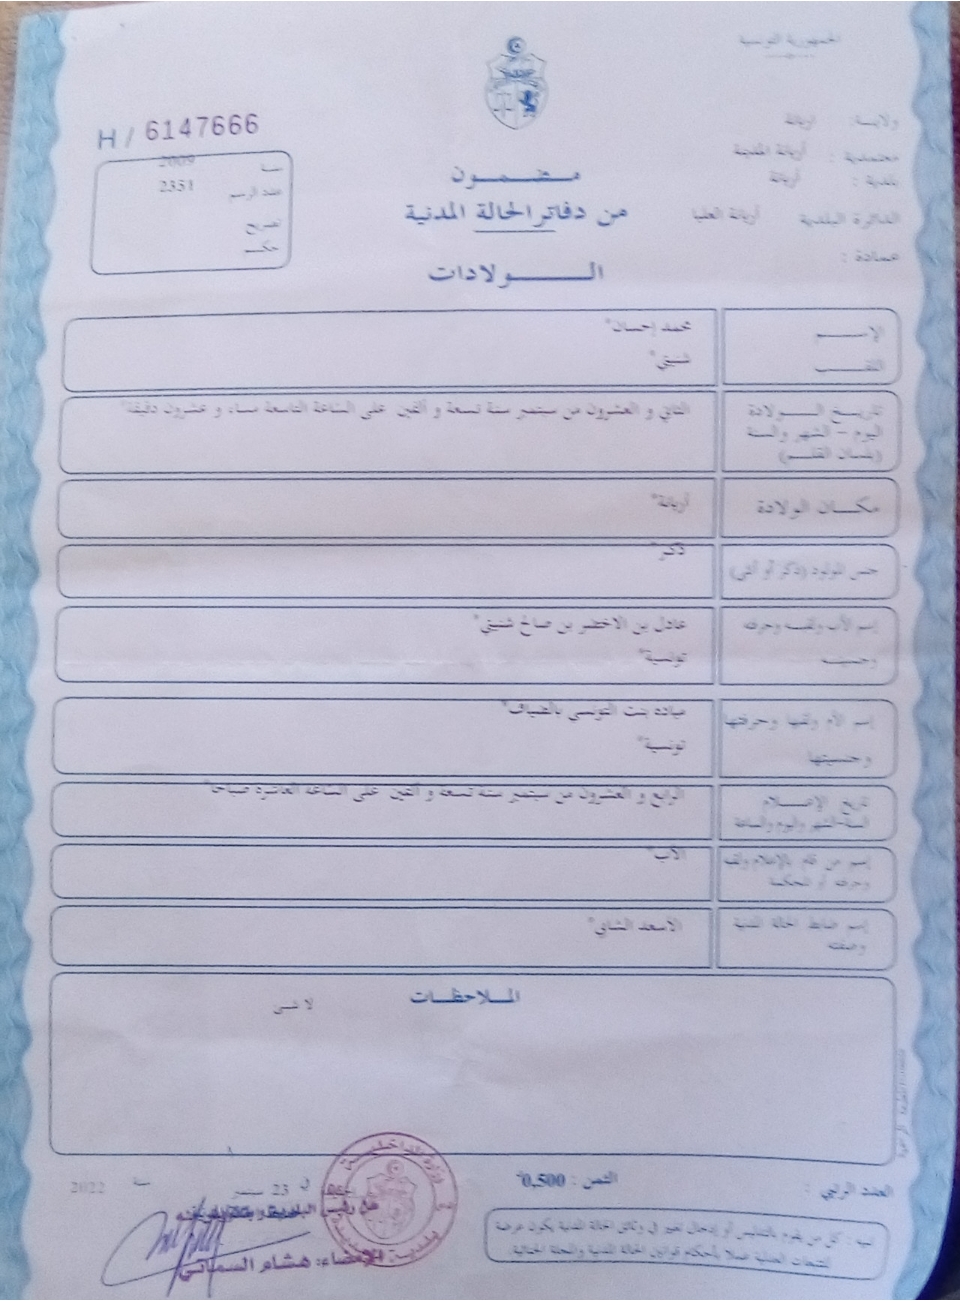 الجمهورية التونسية
H / 6147666
ولاية: اريانة
معتمدية : أريانة المدينة
بلدية : أريانة
الدائرة البلدية أريانة العليا
عمادة :
سنة 2009
عدد الرسم 2351
تصريح
حكم
مضمون
من دفاتر الحالة المدنية
الولادات
الإسم محمد إحسان"
اللقب شنيتي"
تاريخ الولادة
اليوم - الشهر والسنة
(بلسان القلم)
الثاني و العشرون من سبتمبر سنة تسعة و ألفين على الساعة التاسعة مساء و عشرون دقيقة"
مكان الولادة أريانة"
جنس المولود (ذكر أو أنثى) ذكر"
إسم الأب ولقبه وحرفته عادل بن الاخضر بن صالح شنيتي"
وجنسيته تونسية"
إسم الأم ولقبها وحرفتها مياده بنت التونسي بالضياف"
وجنسيتها تونسية"
تاريخ الإعلام
السنة-الشهر واليوم والساعة
الرابع و العشرون من سبتمبر سنة تسعة و ألفين على الساعة العاشرة صباحا"
إسم من قام بالإعلام ولقبه
وحرفته أو المحكمة
الأب"
إسم ضابط الحالة المدنية
وصفته
الأسعد الشابي"
الملاحظات
لا شيء
العدد الرتبي :
الثمن : 0,500د
في 23 سبتمبر سنة 2022
عن رئيس البلدية
الإمضاء: هشام السماتي
وزارة الداخلية
تنبيه : كل من يقوم بالتدليس أو إدخال تغيير في وثائق الحالة المدنية يكون عرضة
للتتبعات العدلية عملا بأحكام قوانين الحالة المدنية والمجلة الجنائية.